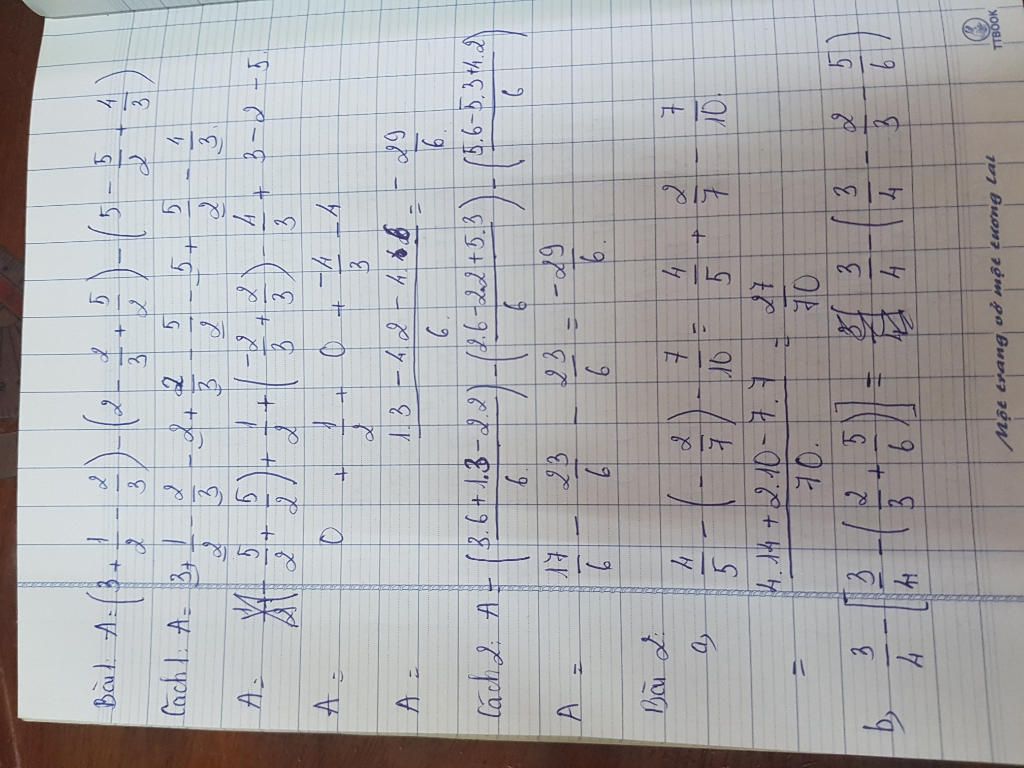 Bài 1: A = (3 + 1/2 - 2/3) - (2 - 2/3 + 5/2) - (5 - 5/2 + 4/3)
Cách 1: A = 3 + 1/2 - 2/3 - 2 + 2/3 - 5/2 - 5 + 5/2 - 4/3.
A = (-5/2 + 5/2) + 1/2 + (-2/3 + 2/3) - 4/3 + 3 - 2 - 5.
A = 0 + 1/2 + 0 + -4/3 - 4
A = 1.3 - 4.2 - 4.6/6. = -29/6.
Cách 2: A - (3.6 + 1.3 - 2.2/6.) - (2.6 - 2.2 + 5.3/6) - (5.6 - 5.3 + 4.2/6)
A = 17/6 - 23/6 - 23/6 = -29/6.
Bài 2:
a, 4/5 - (-2/7) - 7/10 = 4/5 + 2/7 - 7/10.
= 4.14 + 2.10 - 7.7/70. = 27/70
b, 3/4 - [3/4 - (2/3 + 5/6)] = 3/4 - (3/4 - 2/3 - 5/6)
TTBOOK
Một trang vở một tương lai